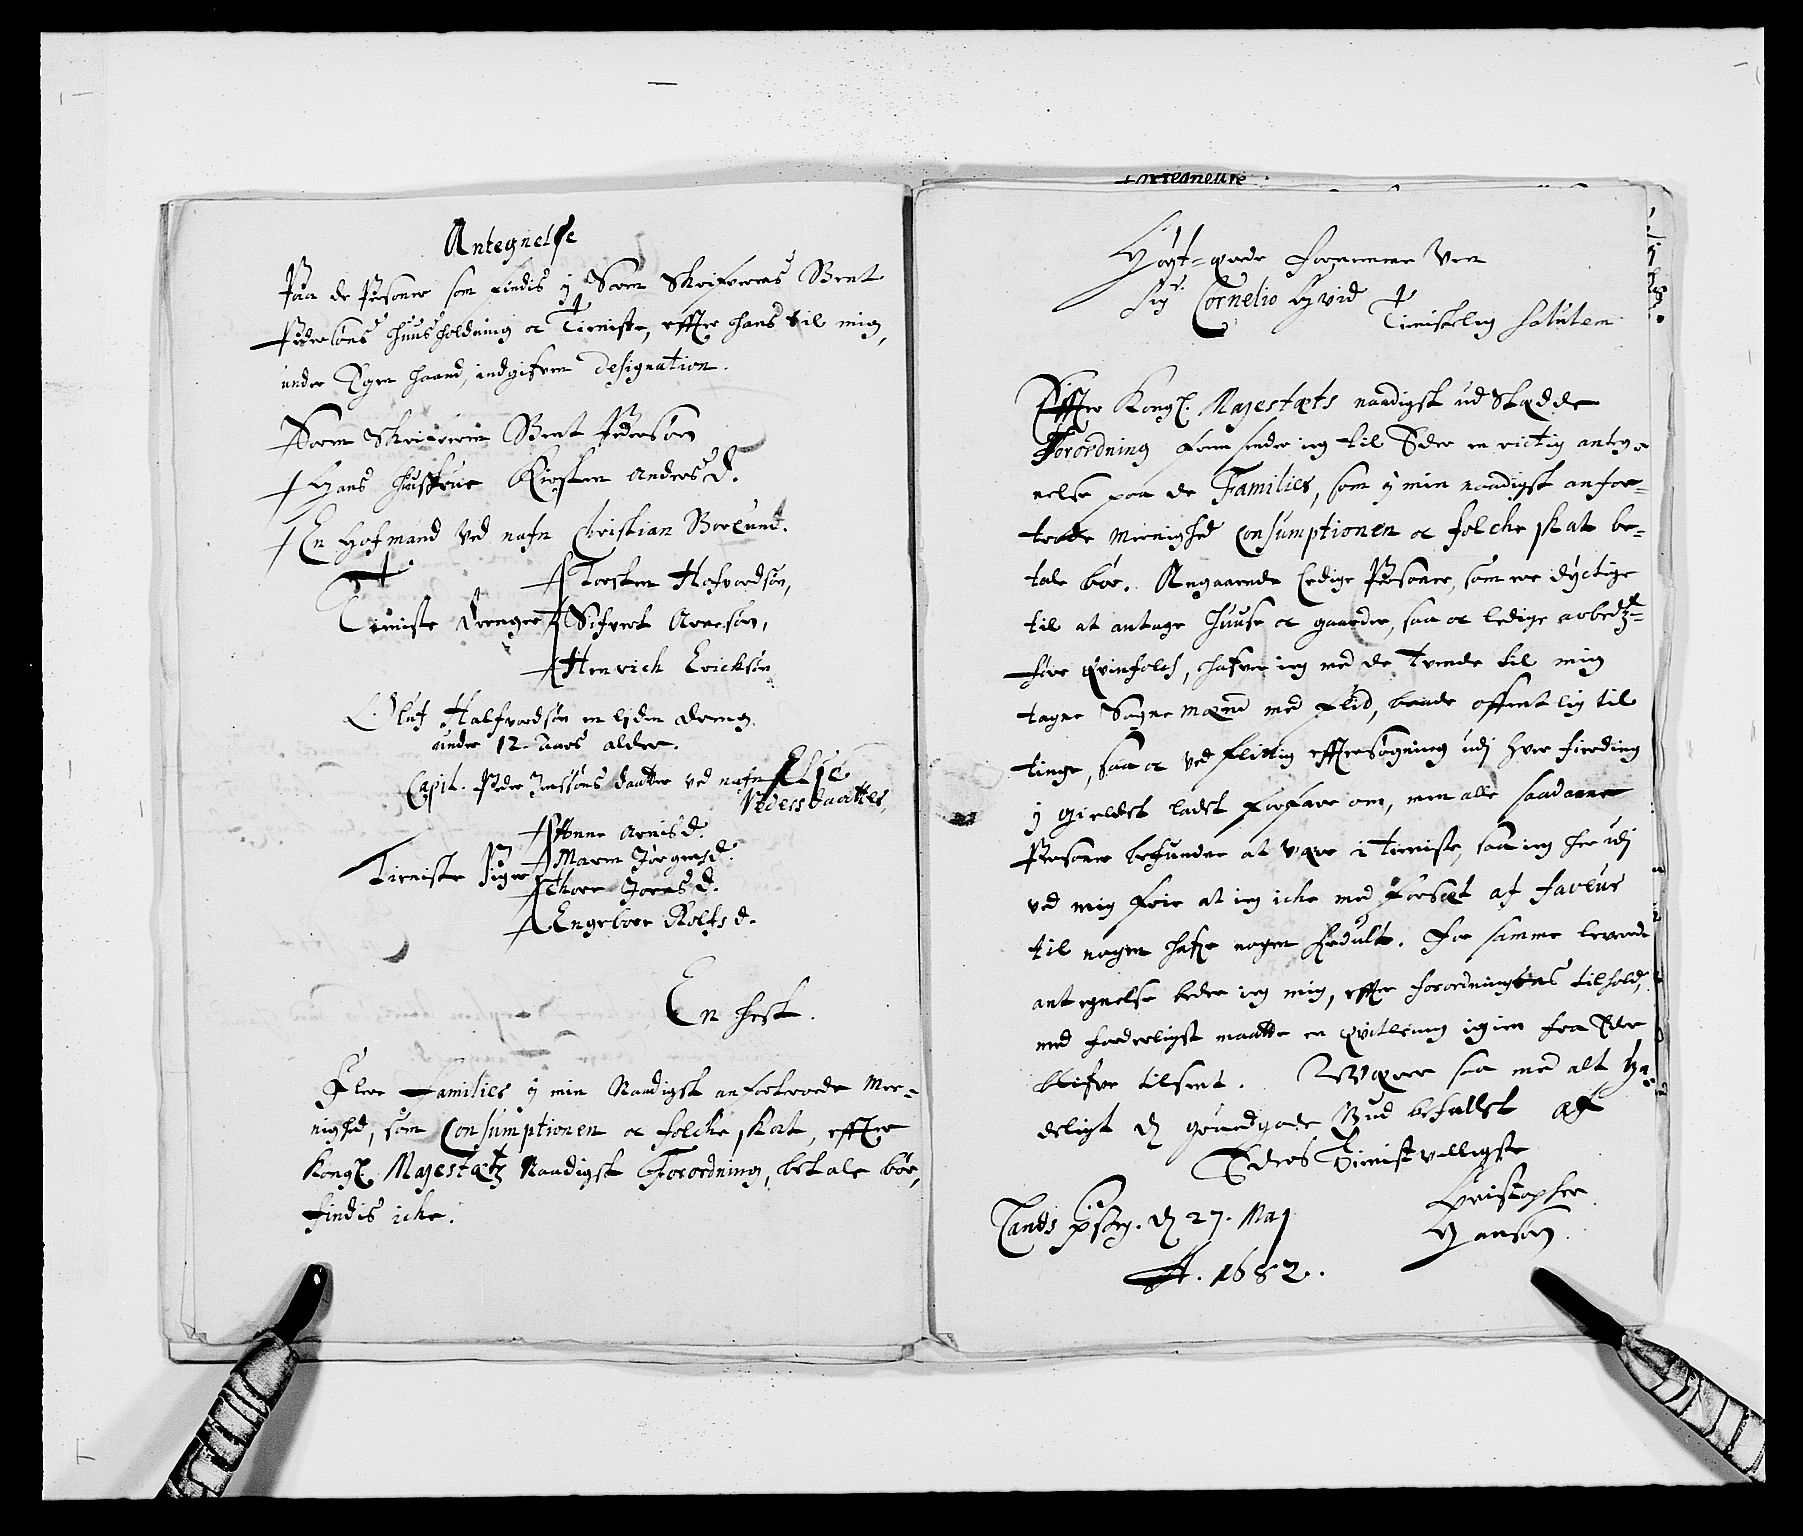 Antegnelse
Paa de Persioner som findis y Soren Skrifverens Bent
Pedersöns huusholdning oc Tieniste, effter hans til mig,
under Egen haand, indgifven designation.
Soren Skrifveren Bent Pedersön
Hans hustrue Kirsten Anders D.
En Hofmand ved nafn Christian Borlund.
Torsten Hafvordsön,
Tieniste drenger Sifvert Arnesön,
Henrich Ericksön
Oluf Halfvordsön en liden dreng
under 12. aars alder.
Capit. Peder Jenssöns daatter ved nafn Else
Pedersdaatter,
Anne Arnis d.
Maren Jörgens d.
Tieniste Piger Thore Joens d.
Engebore Rolfs d.
En hest.
Flere Familier y min Naadigst anfortroede Mee-
nighed, som Consumptionen oc folche skat, effter
Kongl. Majestætz Naadigst Forordning, betale bör,
findis iche.
Höyt-ærede fornemme Ven
Sigr. Cornelio Hvid
Tienstelig Salutem
Effter Kongl. Majestæts naadigst udstædde
Forordning fremsender ieg til Eder en rictig anteg-
nelse paa de Familier, som y min naadigst anfor-
troede Meenighed Consumptionen oc folche skat be-
tale bör. Angaaende ledige Personer, som ere dyctige
til at antage huuse oc gaarder, saa oc ledige arbedtz-
före qvinfolch, hafver ieg med de tvende til mig
tagne Sogne mænd med flid, baade offentlig til
tinge, saa oc ved flittig efftersögning udj hver fierding
y Gieldet ladet forfare om, men alle saadanne
Personer befunder at være i tieniste, saa ieg her udj
ved mig frie at ieg iche med forsæt af faveur
til nogen hafr nogen fordult. For samme leverede
antegnelse beder ieg mig, effter forordningens tilhold,
med forderligst maatte en qvittering igien fra Eder
blifve tilsent. Værer saa med alt
Gud befallet af
Eders Tienistvilligste
Christopher
Hansön
d 27. Maj
A. 1682.